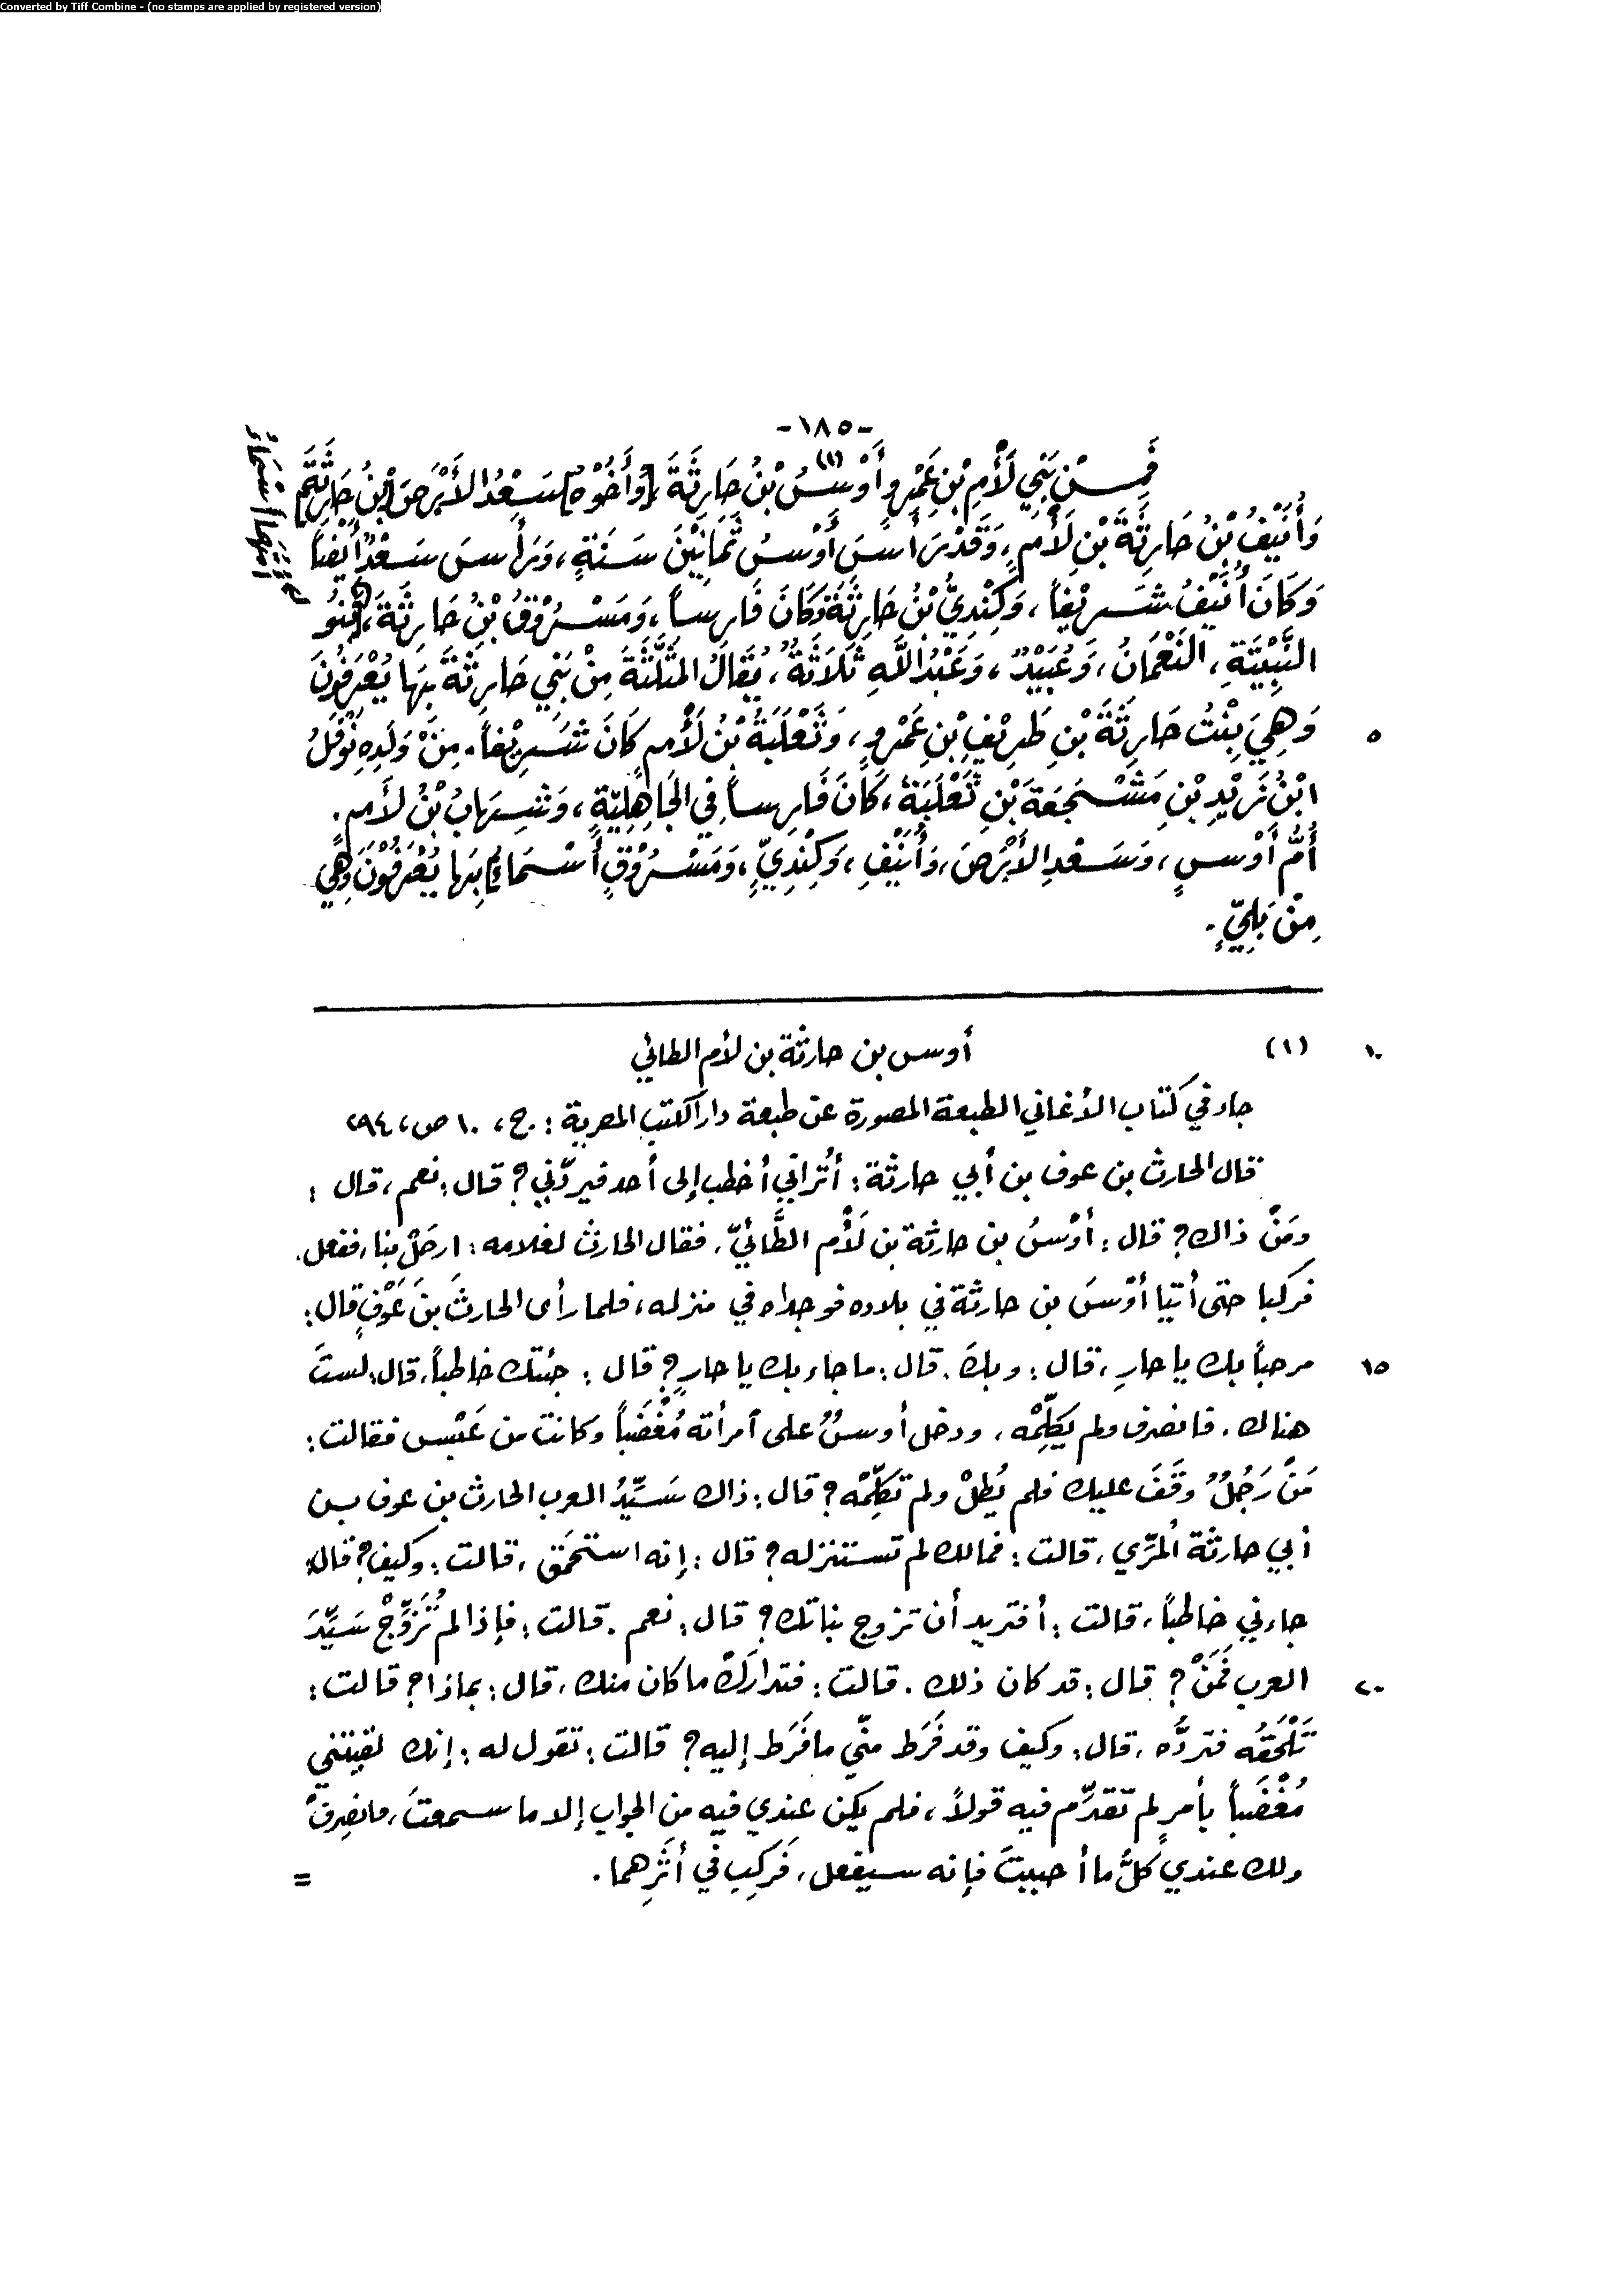 Converted by Tiff Combine - (no stamps are applied by registered version)
-١٨٥-
فَمِنْ بَنِي لَأْمِ بْنِ عَمْرٍو أَوْسُ (١) بْنُ حَارِثَةَ، [وَأَخُوهُ] سَعْدُ الأَبْرَصُ [بْنُ حَارِثَةَ]
وَأُنَيْفُ بْنُ حَارِثَةَ بْنِ لَأْمٍ، وَقَدْ رَأَسَ أَوْسُ ثَمَانِيْنَ سَنَةٍ، وَرَأَسَ سَعْدٌ أَيْضَاً
وَكَانَ أُنَيْفُ شَرِيْفَاً، وَكِنْدِيُّ بْنُ حَارِثَةَ وَكَانَ فَارِسَاً، وَمَسْرُوْقُ بْنُ حَارِثَةَ، بَنُو
النَّعْمَانُ، وَعُبَيْدٌ، وَعَبْدُ اللَّهِ ثَلَاثَةٌ، يُقَالُ الْمُثَلَّثَةَ مِنْ بَنِي حَارِثَةَ بِهَا يُعْرَفُونَ
وَهِيَ بِنْتُ حَارِثَةَ بْنِ طَرِيْفِ بْنِ عَمْرٍو، وَثَعْلَبَةُ بْنُ لَأْمٍ كَانَ شَرِيْفَاً. مِنْ وَلَدِهِ نَوْفَلُ
٥
ابْنُ زَيْدِ بْنِ مَشْجَعَةَ بْنِ ثَعْلَبَةَ، كَانَ فَارِسَاً فِي الْجَاهِلِيَّةِ، وَشِهَابُ بْنُ لَأْمٍ.
أُمُّ أَوْسٍ، وَسَعْدِ الأَبْرَصَ، وَأُنَيْفٍ، وَكِنْدِيٍّ، وَمَسْرُوْقٍ أَسْمَاءُ بِهَا يُعْرَفُوْنَ وَهِيَ
مِنْ بَلِيٍّ.
(١) أوس بن حارثة بن لأم الطائي
١٠
جاء في كتاب الأغاني الطبعة المصورة عن طبعة دار الكتب المصرية : ج، ١٠ ص، ٢٩٤
قال الحارث بن عوف بن أبي حارثة : أتُراني أخطب إلى أحد فيردّني؟ قال : نعم، قال :
ومَنْ ذاك؟ قال : أوْسُ بن حارثة بن لَأْم الطَّائيّ. فقال الحارث لغلامه : ارحَلْ بنا، ففعل.
فركبا حتى أتيا أوْسَ بن حارثة في بلاده فوجداه في منزله، فلما رأى الحارثَ بنَ عَوْفٍ قال :
مرحباً بك يا حارِ، قال : وبكَ. قال : ما جاء بك يا حارِ؟ قال : جئتك خاطباً، قال : لستَ
١٥
هناك. فانصرف ولم يكلِّمْه، ودخل أوسٌ على امرأته مُغْضَباً وكانت من عَبْس فقالت :
مَنْ رَجُلٌ وقَفَ عليك فلم يُطِلْ ولم تكلِّمْه؟ قال : ذاك سَيِّدُ العرب الحارث بن عوف بن
أبي حارثة المُرّي، قالت : فمالك لم تستنزله؟ قال : إنه استحْمَق، قالت : وكيف؟ قال :
جاءني خاطباً، قالت : أفتريد أن تزوج بناتك؟ قال : نعم. قالت : فإذا لم تُزَوِّجْ سَيِّدَ
العرب فَمَنْ؟ قال : قد كان ذلك. قالت : فتدارَكْ ما كان منك، قال : بماذا؟ قالت :
٢٠
تَلْحَقُه فتردُّه، قال : وكيف وقد فَرَط منّي ما فَرَط إليه؟ قالت : تقول له : إنك لقيتني
مُغْضَباً بأمرٍ لم تقدِّم فيه قولاً، فلم يكن عندي فيه من الجواب إلا ما سمعتَ، فانصِرفْ
ولك عندي كلُّ ما أحببتَ فإنه سيفعل، فَرَكِب في أثَرِهما.
=